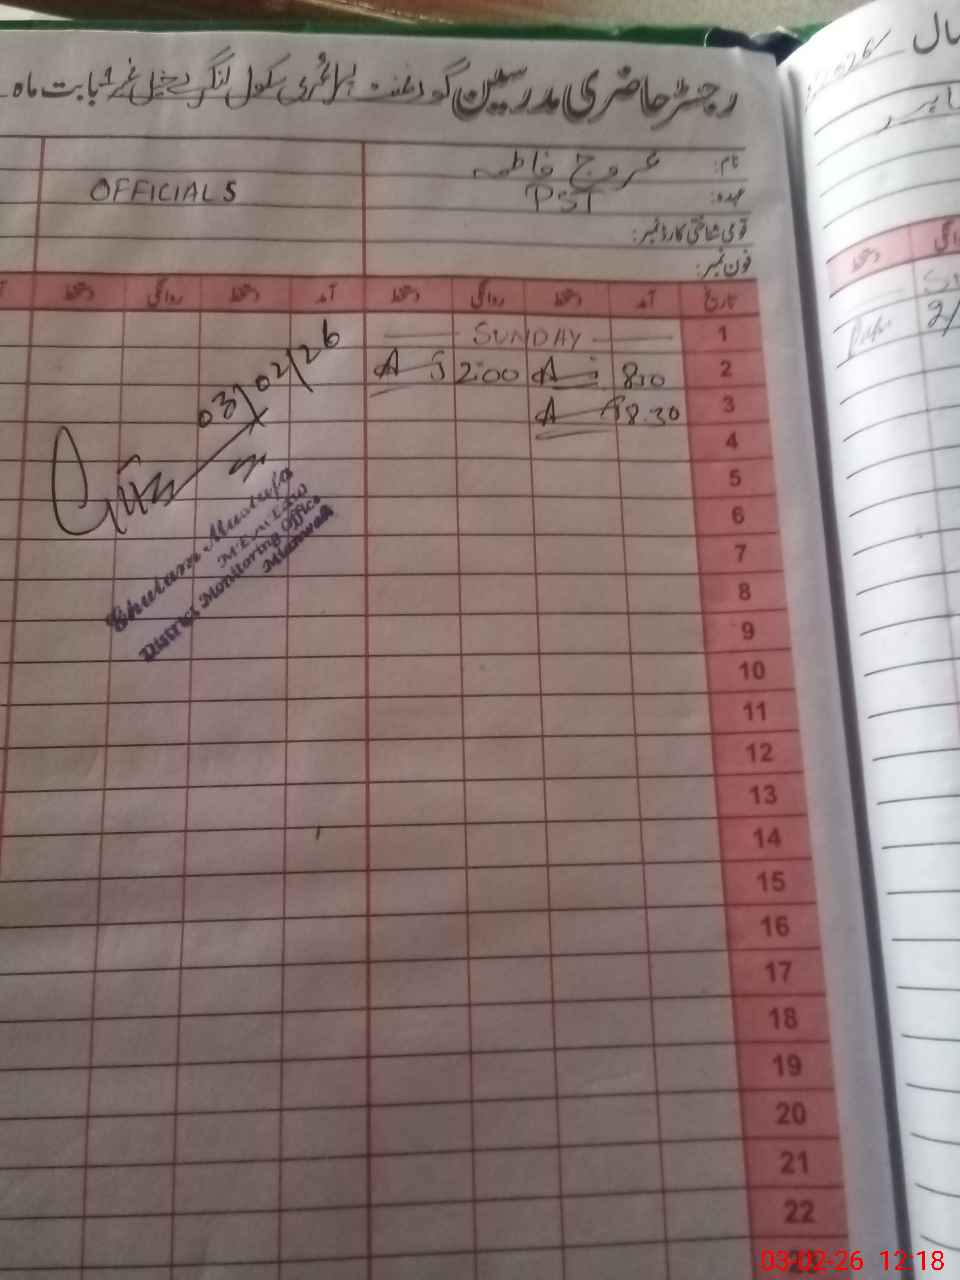 رجسٹر حاضری مدرسین گورنمنٹ پرائمری سکول لنگر خیل نمبر 1 بابت ماہ
سال 2026
نام: عروج فاطمہ
عہدہ: PST
OFFICIALS
قومی شناختی کارڈ نمبر:
فون نمبر:
تاریخ آمد دستخط روانگی دستخط آمد دستخط روانگی دستخط
1 SUNDAY
2 8:30 2:00
3 8.30
4
5
6
7
8
9
10
11
12
13
14
15
16
17
18
19
20
21
22
03/02/26
Ghulam Mustafa
M.E.A
District Monitoring Office
Mianwali
روانگی دستخط
03-02-26 12:18